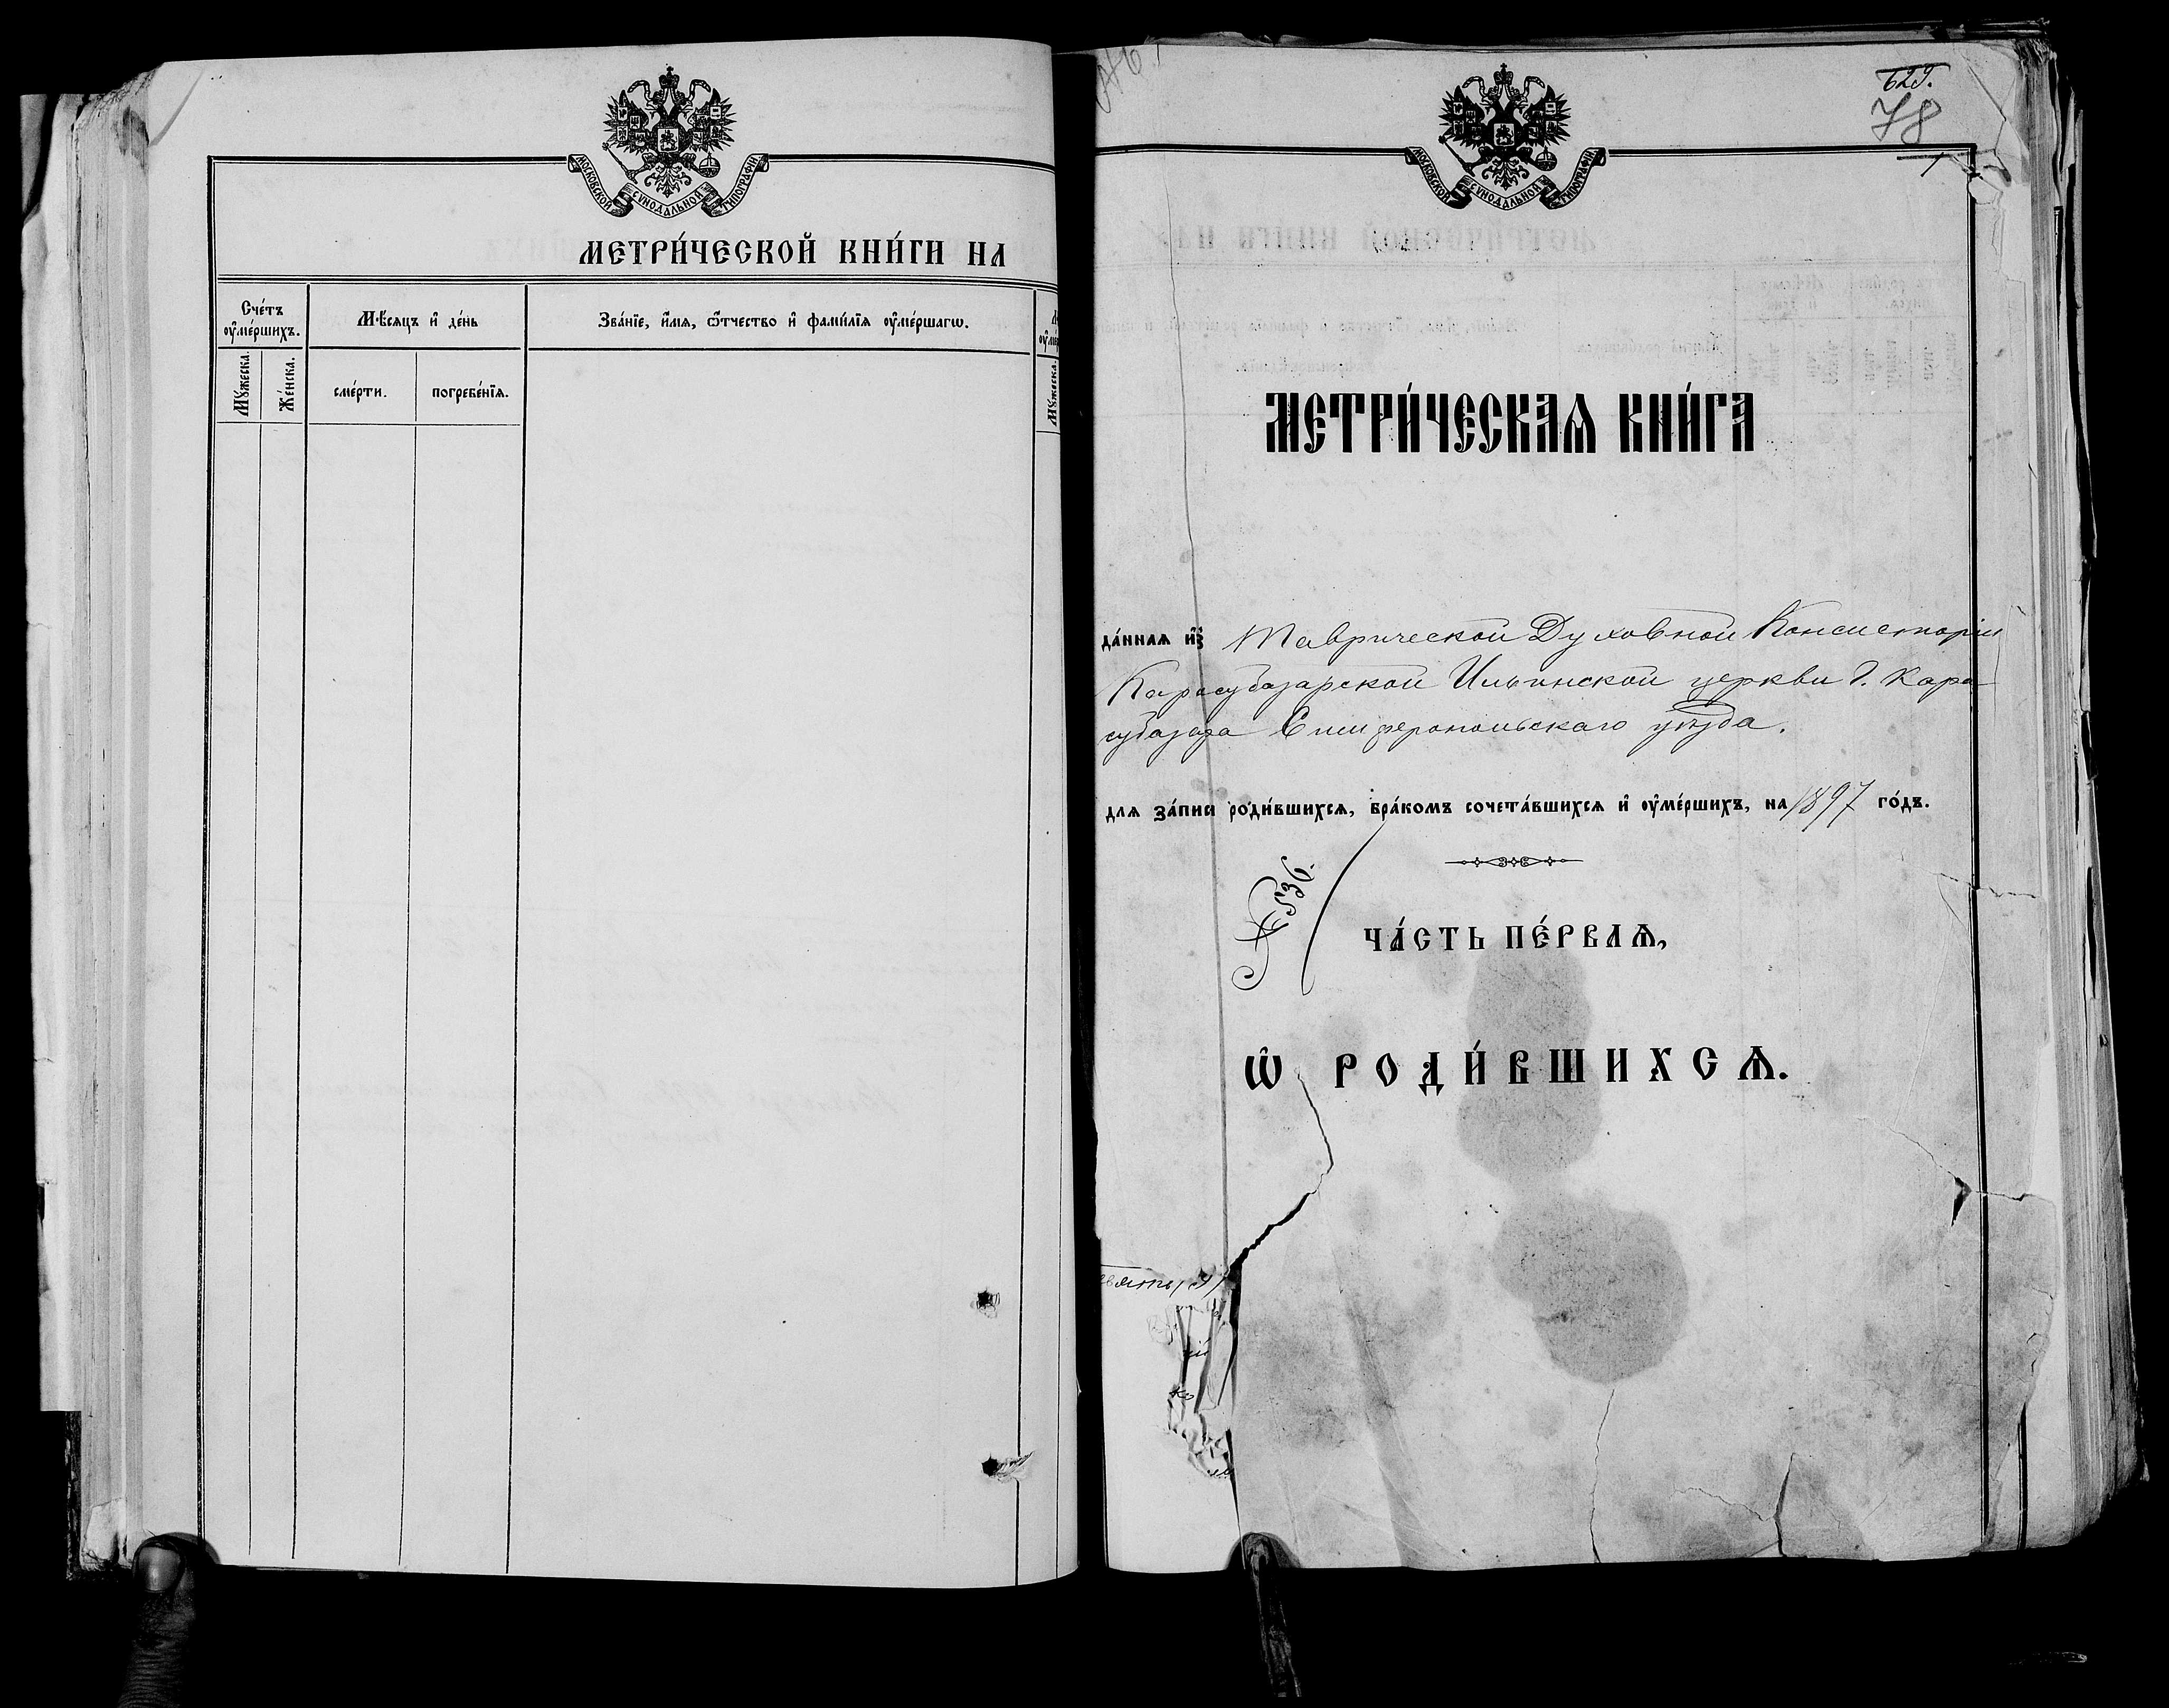 МОСКОВСКОЙ СѴНОДАЛЬНОЙ ТИПОГРАФІИ
МЕТРИ́ЧЕСКОЙ КНИ́ГИ НА
Сче́тъ ᲂу҆ме́ршихъ.
Мѣ́сяцъ и҆ де́нь
Зва́нїе, и҆́мѧ, ѻ҆́тчество и҆ фами́лїѧ ᲂу҆ме́ршагѡ.
Мꙋ́жеска.
Же́нска.
сме́рти.
погребе́нїѧ.
Мꙋ́жеска.
629.
78
МОСКОВСКОЙ СѴНОДАЛЬНОЙ ТИПОГРАФІИ
МЕТРИ́ЧЕСКАѦ КНИ́ГА
да́ннаѧ и҆з̾ Таврической Духовной Консисторіи
Карасубазарской Ильинской церкви г. Кара
субазара Симферопольскаго уѣзда.
длѧ за́писи роди́вшихсѧ, бра́комъ сочета́вшихсѧ и҆ ᲂу҆ме́ршихъ, на 1897 го́дъ.
№ 536.
ЧА́СТЬ ПЕ́РВАѦ,
Ѡ҆ РОДИ́ВШИХСѦ.